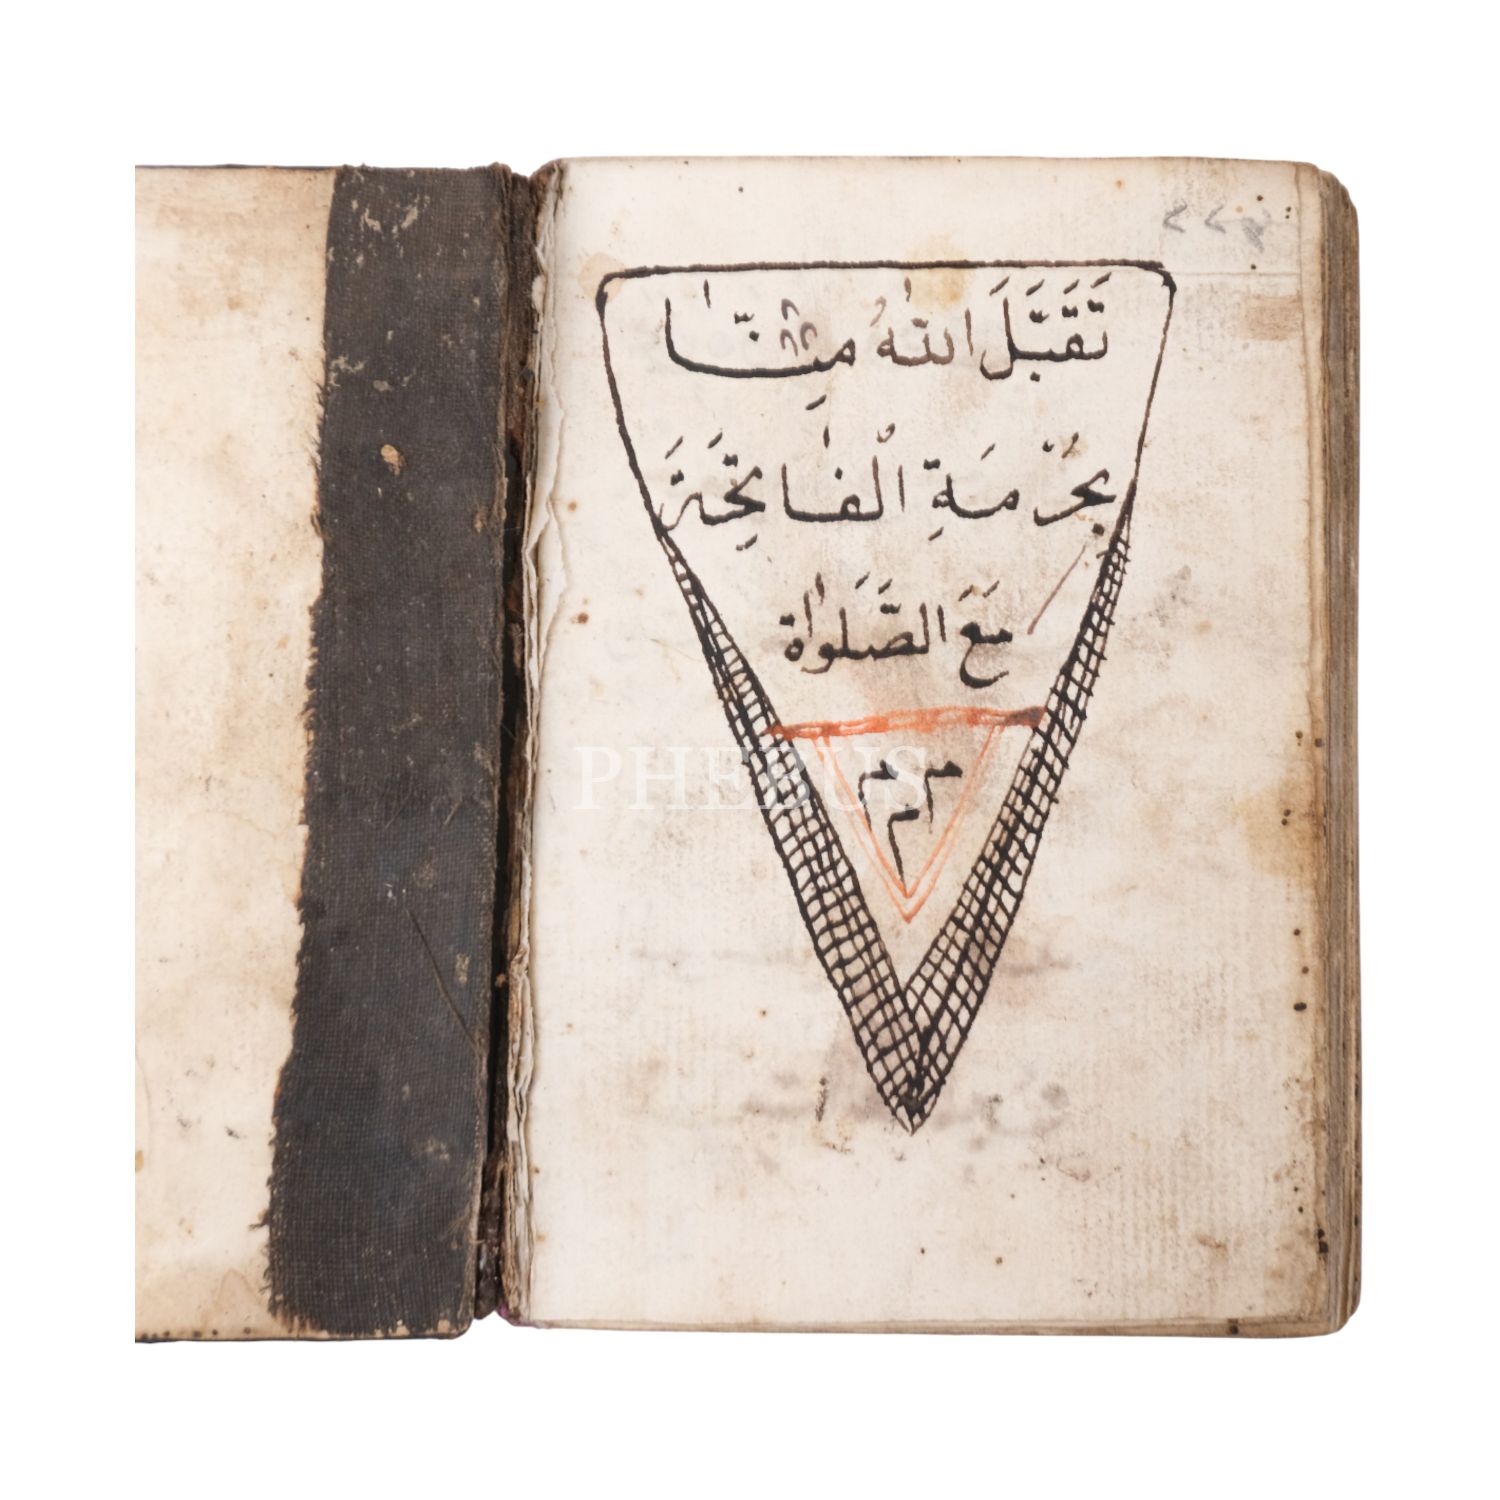 تَقَبَّلَ اللّٰهُ مِنَّا
بِحُرْمَةِ الْفَاتِحَةَ
مَعَ الصَّلَوٰاة
م م
م
PHEBUS